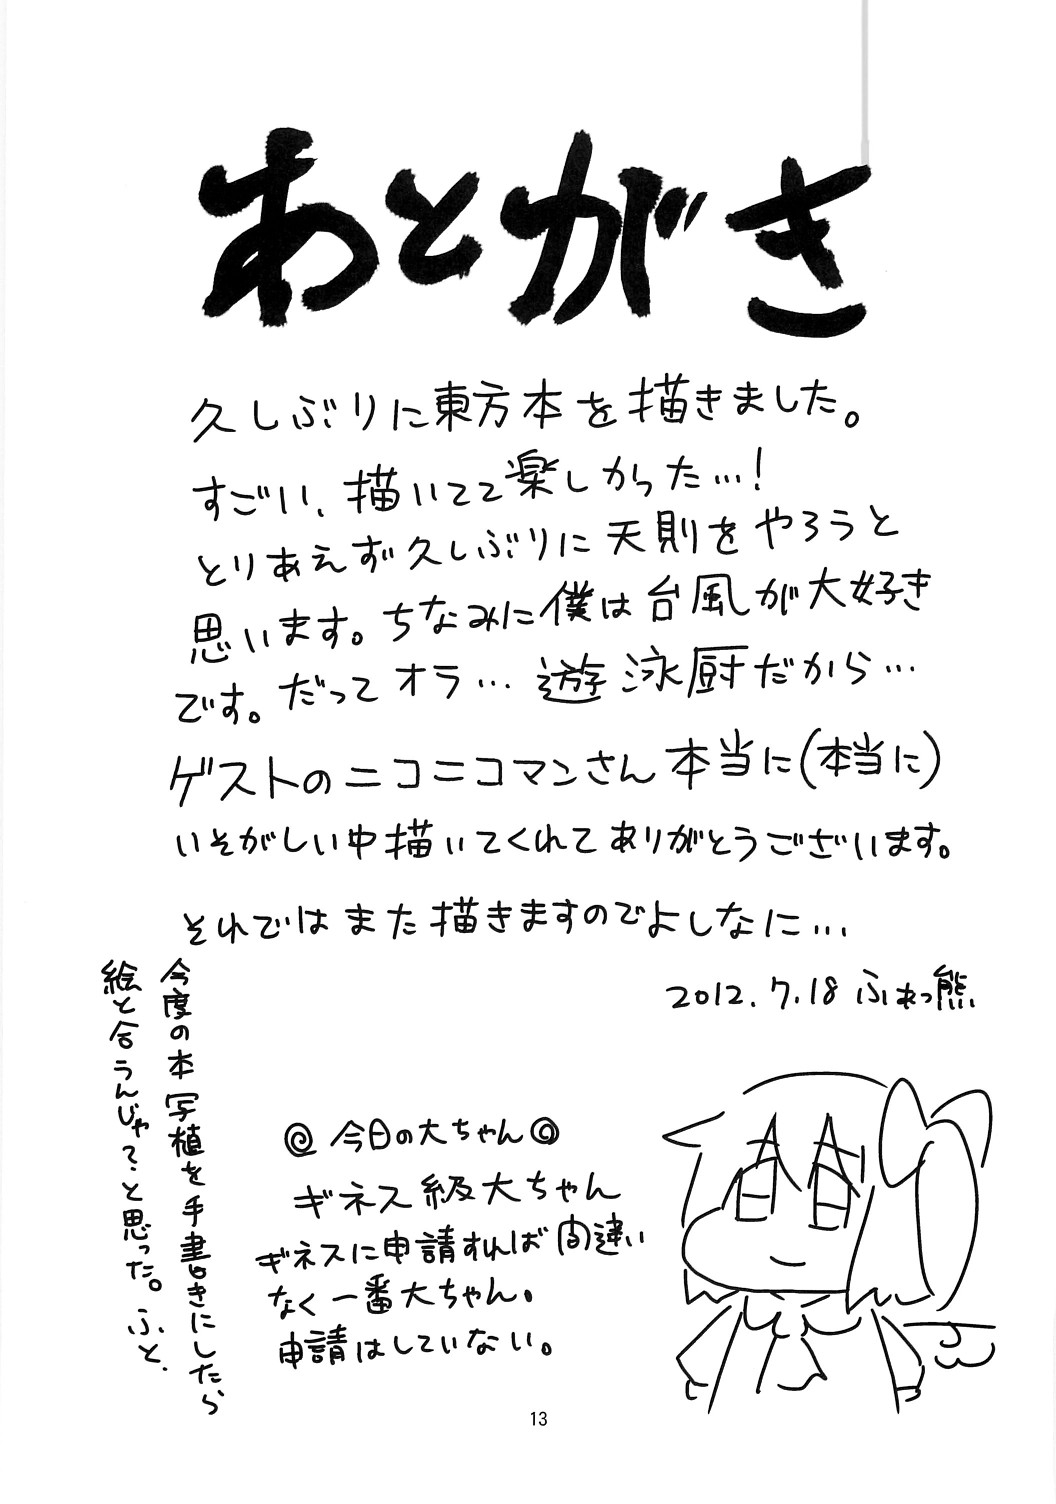 あとがき
久しぶりに東方本を描きました。
すごい、描いてて楽しかった…!
とりあえず久しぶりに天則をやろうと
思います。ちなみに僕は台風が大好き
です。だってオラ…遊泳厨だから…
ゲストのニコニコマンさん本当に(本当に)
いそがしい中描いてくれてありがとうございます。
それではまた描きますのでよしなに…
2012.7.18 ふぁっ熊
今度の本写植を手書きにしたら
絵と合うんじゃ?と思った。ふと.
今日の大ちゃん
ギネス級大ちゃん
ギネスに申請すれば間違い
なく一番大ちゃん。
申請はしていない。
13